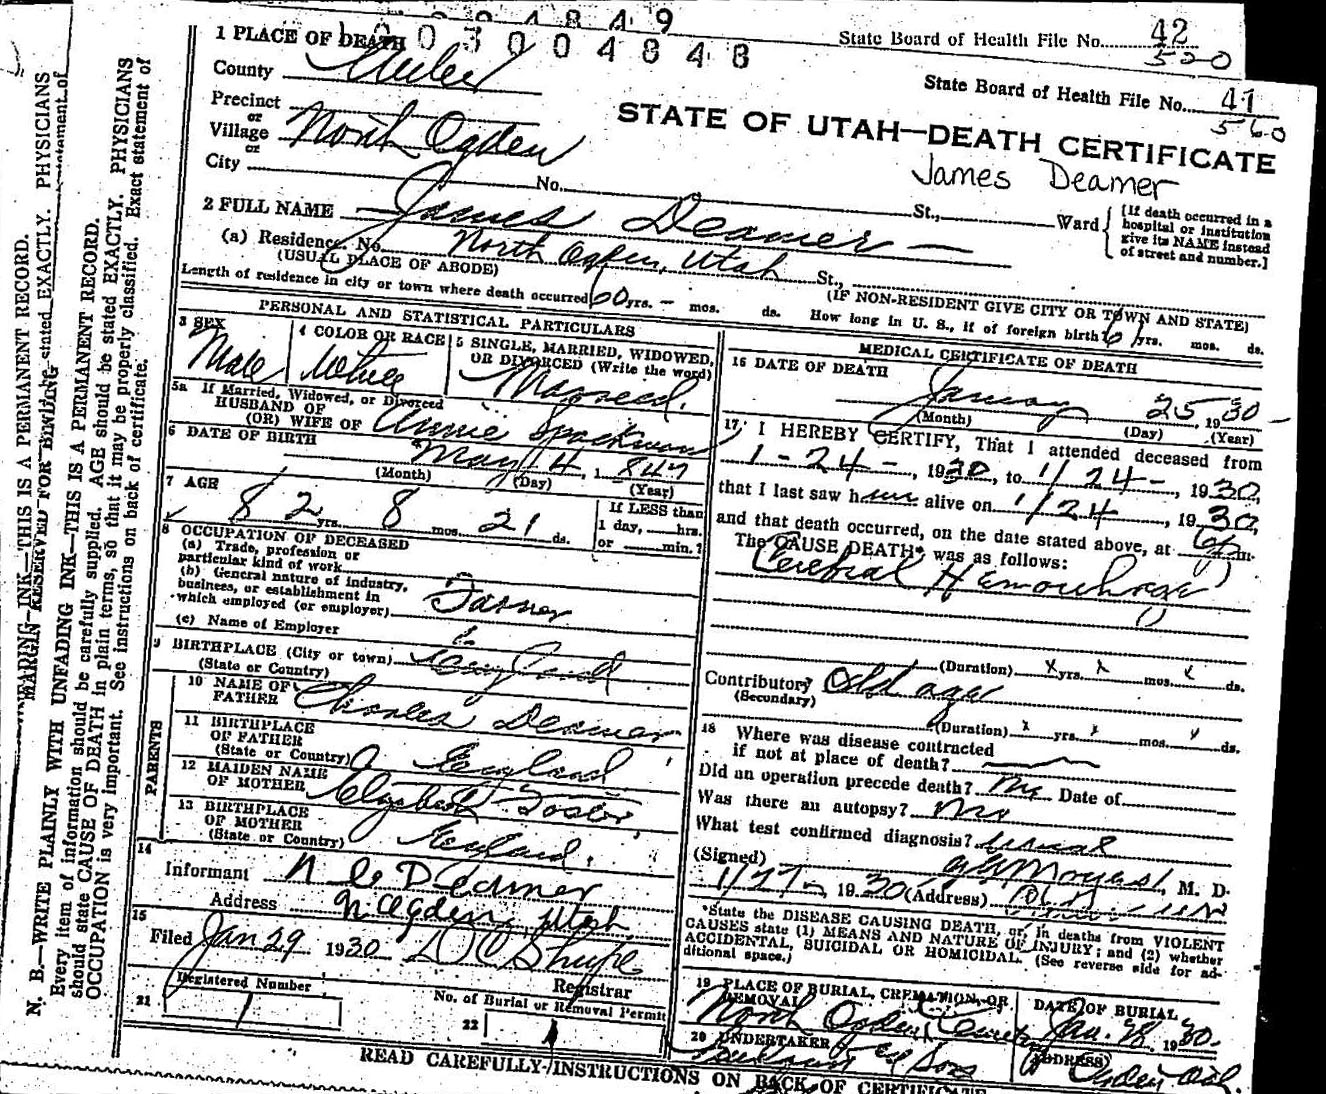 State Board of Health File No. 42
520
0 3 0 0 4 8 4 8
State Board of Health File No. 41
560
STATE OF UTAH—DEATH CERTIFICATE
James Deamer
1 PLACE OF DEATH
County Weber
Precinct
or
Village North Ogden
or
City No. St., Ward
[If death occurred in a
hospital or institution
give its NAME instead
of street and number.]
2 FULL NAME James Deamer
(a) Residence. No. North Ogden, Utah St.,
(USUAL PLACE OF ABODE)
(IF NON-RESIDENT GIVE CITY OR TOWN AND STATE)
Length of residence in city or town where death occurred 60 yrs. - mos. ds. How long in U. S., if of foreign birth? 61 yrs. mos. ds.
PERSONAL AND STATISTICAL PARTICULARS
3 SEX
Male
4 COLOR OR RACE
White
5 SINGLE, MARRIED, WIDOWED,
OR DIVORCED (Write the word)
Married.
5a If Married, Widowed, or Divorced
HUSBAND OF
(OR) WIFE OF Annie Spackman
6 DATE OF BIRTH
May 4, 1847
(Month) (Day) (Year)
7 AGE
82 yrs. 8 mos. 21 ds.
If LESS than
1 day, hrs.
or min.?
8 OCCUPATION OF DECEASED
(a) Trade, profession or
particular kind of work
(b) General nature of industry,
business, or establishment in
which employed (or employer) Farmer
(c) Name of Employer
9 BIRTHPLACE (City or town) England
(State or Country)
PARENTS
10 NAME OF
FATHER Charles Deamer
11 BIRTHPLACE
OF FATHER
(State or Country) England
12 MAIDEN NAME
OF MOTHER Elizabeth Foster,
13 BIRTHPLACE
OF MOTHER
(State or Country) England.
14
Informant N C Deamer
Address N. Ogden, Utah
15
Filed Jan 29 1930 D C Shupe
Registrar
Registered Number
21 1
No. of Burial or Removal Permit
22 1
MEDICAL CERTIFICATE OF DEATH
16 DATE OF DEATH
January 25, 1930
(Month) (Day) (Year)
17 I HEREBY CERTIFY, That I attended deceased from
1-24-, 1930, to 1/24-, 1930,
that I last saw him alive on 1/24, 1930,
and that death occurred, on the date stated above, at 6 p m.
The CAUSE DEATH* was as follows:
Cerebral Hemorrhage
(Duration) x yrs. x mos. x ds.
Contributory Old age
(Secondary)
(Duration) x yrs. x mos. x ds.
18 Where was disease contracted
if not at place of death?
Did an operation precede death? No Date of
Was there an autopsy? No
What test confirmed diagnosis?
(Signed) , M. D.
1/27-, 1930 (Address)
*State the DISEASE CAUSING DEATH, or, in deaths from VIOLENT
CAUSES state (1) MEANS AND NATURE OF INJURY; and (2) whether
ACCIDENTAL, SUICIDAL OR HOMICIDAL. (See reverse side for ad-
ditional space.)
19 PLACE OF BURIAL, CREMATION, OR
REMOVAL
North Ogden Cemetery
DATE OF BURIAL
Jan. 28, 1930
20 UNDERTAKER
& Sons
(ADDRESS)
Ogden Utah.
READ CAREFULLY INSTRUCTIONS ON BACK OF CERTIFICATE
MARGIN RESERVED FOR BINDING
N. B.—WRITE PLAINLY WITH UNFADING INK—THIS IS A PERMANENT RECORD.
Every item of information should be carefully supplied. AGE should be stated EXACTLY. PHYSICIANS
should state CAUSE OF DEATH in plain terms, so that it may be properly classified. Exact statement of
OCCUPATION is very important. See instructions on back of certificate.